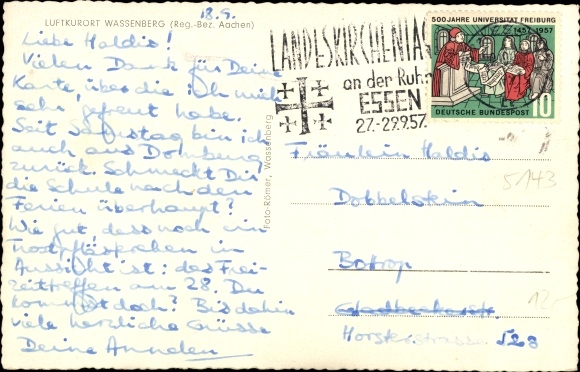 18.9.
LUFTKURORT WASSENBERG (Reg.-Bez. Aachen)
Liebe Haldis!
Vielen Dank für Deine
Karte, über die ich mich
sehr gefreut habe.
Seit Samstag bin ich
auch aus Domburg
zurück. Schmeckt Dir
die Schule nach den
Ferien überhaupt?
Wie gut, dass noch ein
Trostpflästerchen in
Aussicht ist: das Frei-
zeittreffen am 28. Du
kommst doch? Bis dahin
viele herzliche Grüsse
Deine
Foto-Römer, Wassenberg
LANDESKIRCHENTAG
an der Ruhr
ESSEN
27.-29.9.57
500 JAHRE UNIVERSITÄT FREIBURG
1457-1957
DEUTSCHE BUNDESPOST
10
Fräulein Haldis
5143
Dobbelstein
Bottrop
12
Gladbeckerstr.
Horsterstrasse 523